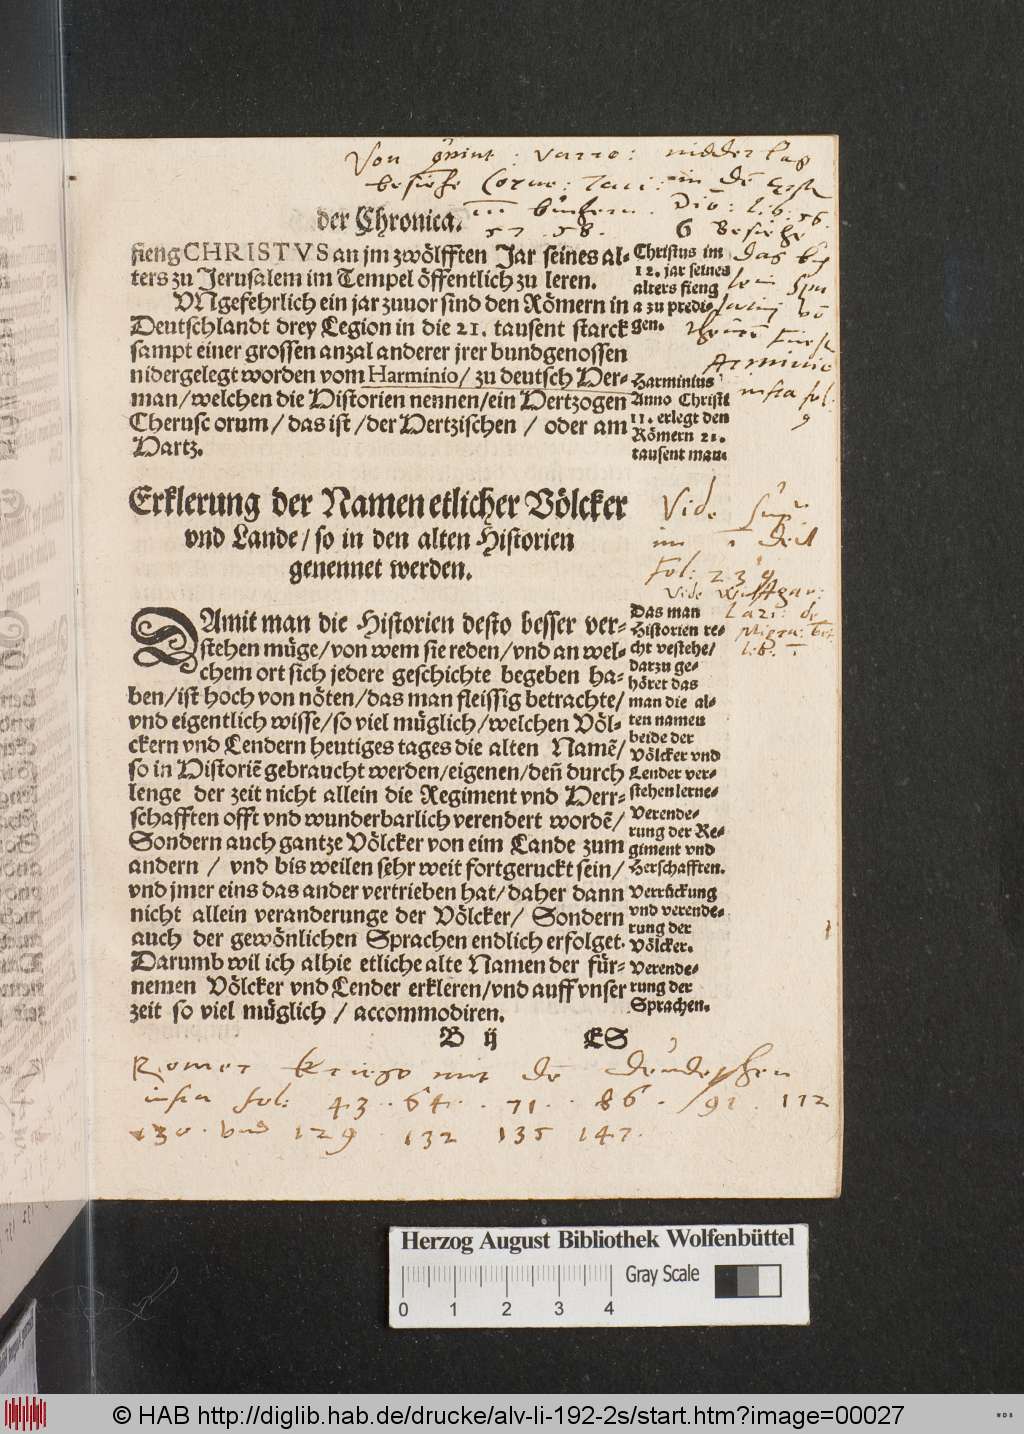 Von Quint: Varro: nidderlag
besiehe Corne: Taci: in de
in büchern. Dio: lib: 56.
der Chronica.
57 58. 6 Besiehe
fieng CHRISTVS an jm zwölfften Jar seines al-
ters zu Jerusalem im Tempel öffentlich zu leren.
VNgefehrlich ein jar zuuor sind den Römern in
Deutschlandt drey Legion in die 21. tausent starck
sampt einer grossen anzal anderer jrer bundgenossen
nidergelegt worden vom Harminio/ zu deutsch Her-
man/welchen die Historien nennen/ein Hertzogen
Cherusc orum/ das ist /der Hertzischen / oder am
Hartz.
Christus im
12. jar seines
alters fieng
a zu predi-
gen.
das
Arminio
infra fol:
9
Harminius
Anno Christi
11. erlegt den
Römern 21.
tausent man.
Erklerung der Namen etlicher Völcker
vnd Lande/ so in den alten Historien
genennet werden.
Vide
im 1 Deil
Fol: 239
Vide Wolfgan:
Lazi: de
Migra:
lib: 1
DAmit man die Historien desto besser ver-
stehen müge/von wem sie reden/vnd an wel-
chem ort sich jedere geschichte begeben ha-
ben/ist hoch von nöten/das man fleissig betrachte/
vnd eigentlich wisse/so viel müglich/welchen Völ-
ckern vnd Lendern heutiges tages die alten Namẽ/
so in Historiẽ gebraucht werden/eigenen/deñ durch
lenge der zeit nicht allein die Regiment vnd Herr-
schafften offt vnd wunderbarlich verendert wordẽ/
Sondern auch gantze Völcker von eim Lande zum
andern / vnd bis weilen sehr weit fortgeruckt sein/
vnd jmer eins das ander vertrieben hat/daher dann
nicht allein veranderunge der Völcker/ Sondern
auch der gewönlichen Sprachen endlich erfolget.
Darumb wil ich alhie etliche alte Namen der für-
nemen Völcker vnd Lender erkleren/vnd auff vnser
zeit so viel müglich / accommodiren.
Das man
Historien re-
cht vestehe/
darzu ge-
höret das
man die al-
ten namen
beide der
Völcker vnd
Lender ver-
stehen lerne.
Verende-
rung der Re-
giment vnd
Herschafften.
Verrückung
vnd verende-
rung der
Völcker.
Verende-
rung der
Sprachen.
B ij ES
Romer Kriege mit de Deudeschen
infra fol: 43 . 64 . 71 . 86 . 91 . 112
130 . vnd 129 . 132 135 147.
Herzog August Bibliothek Wolfenbüttel
Gray Scale
0 1 2 3 4
© HAB http://diglib.hab.de/drucke/alv-li-192-2s/start.htm?image=00027